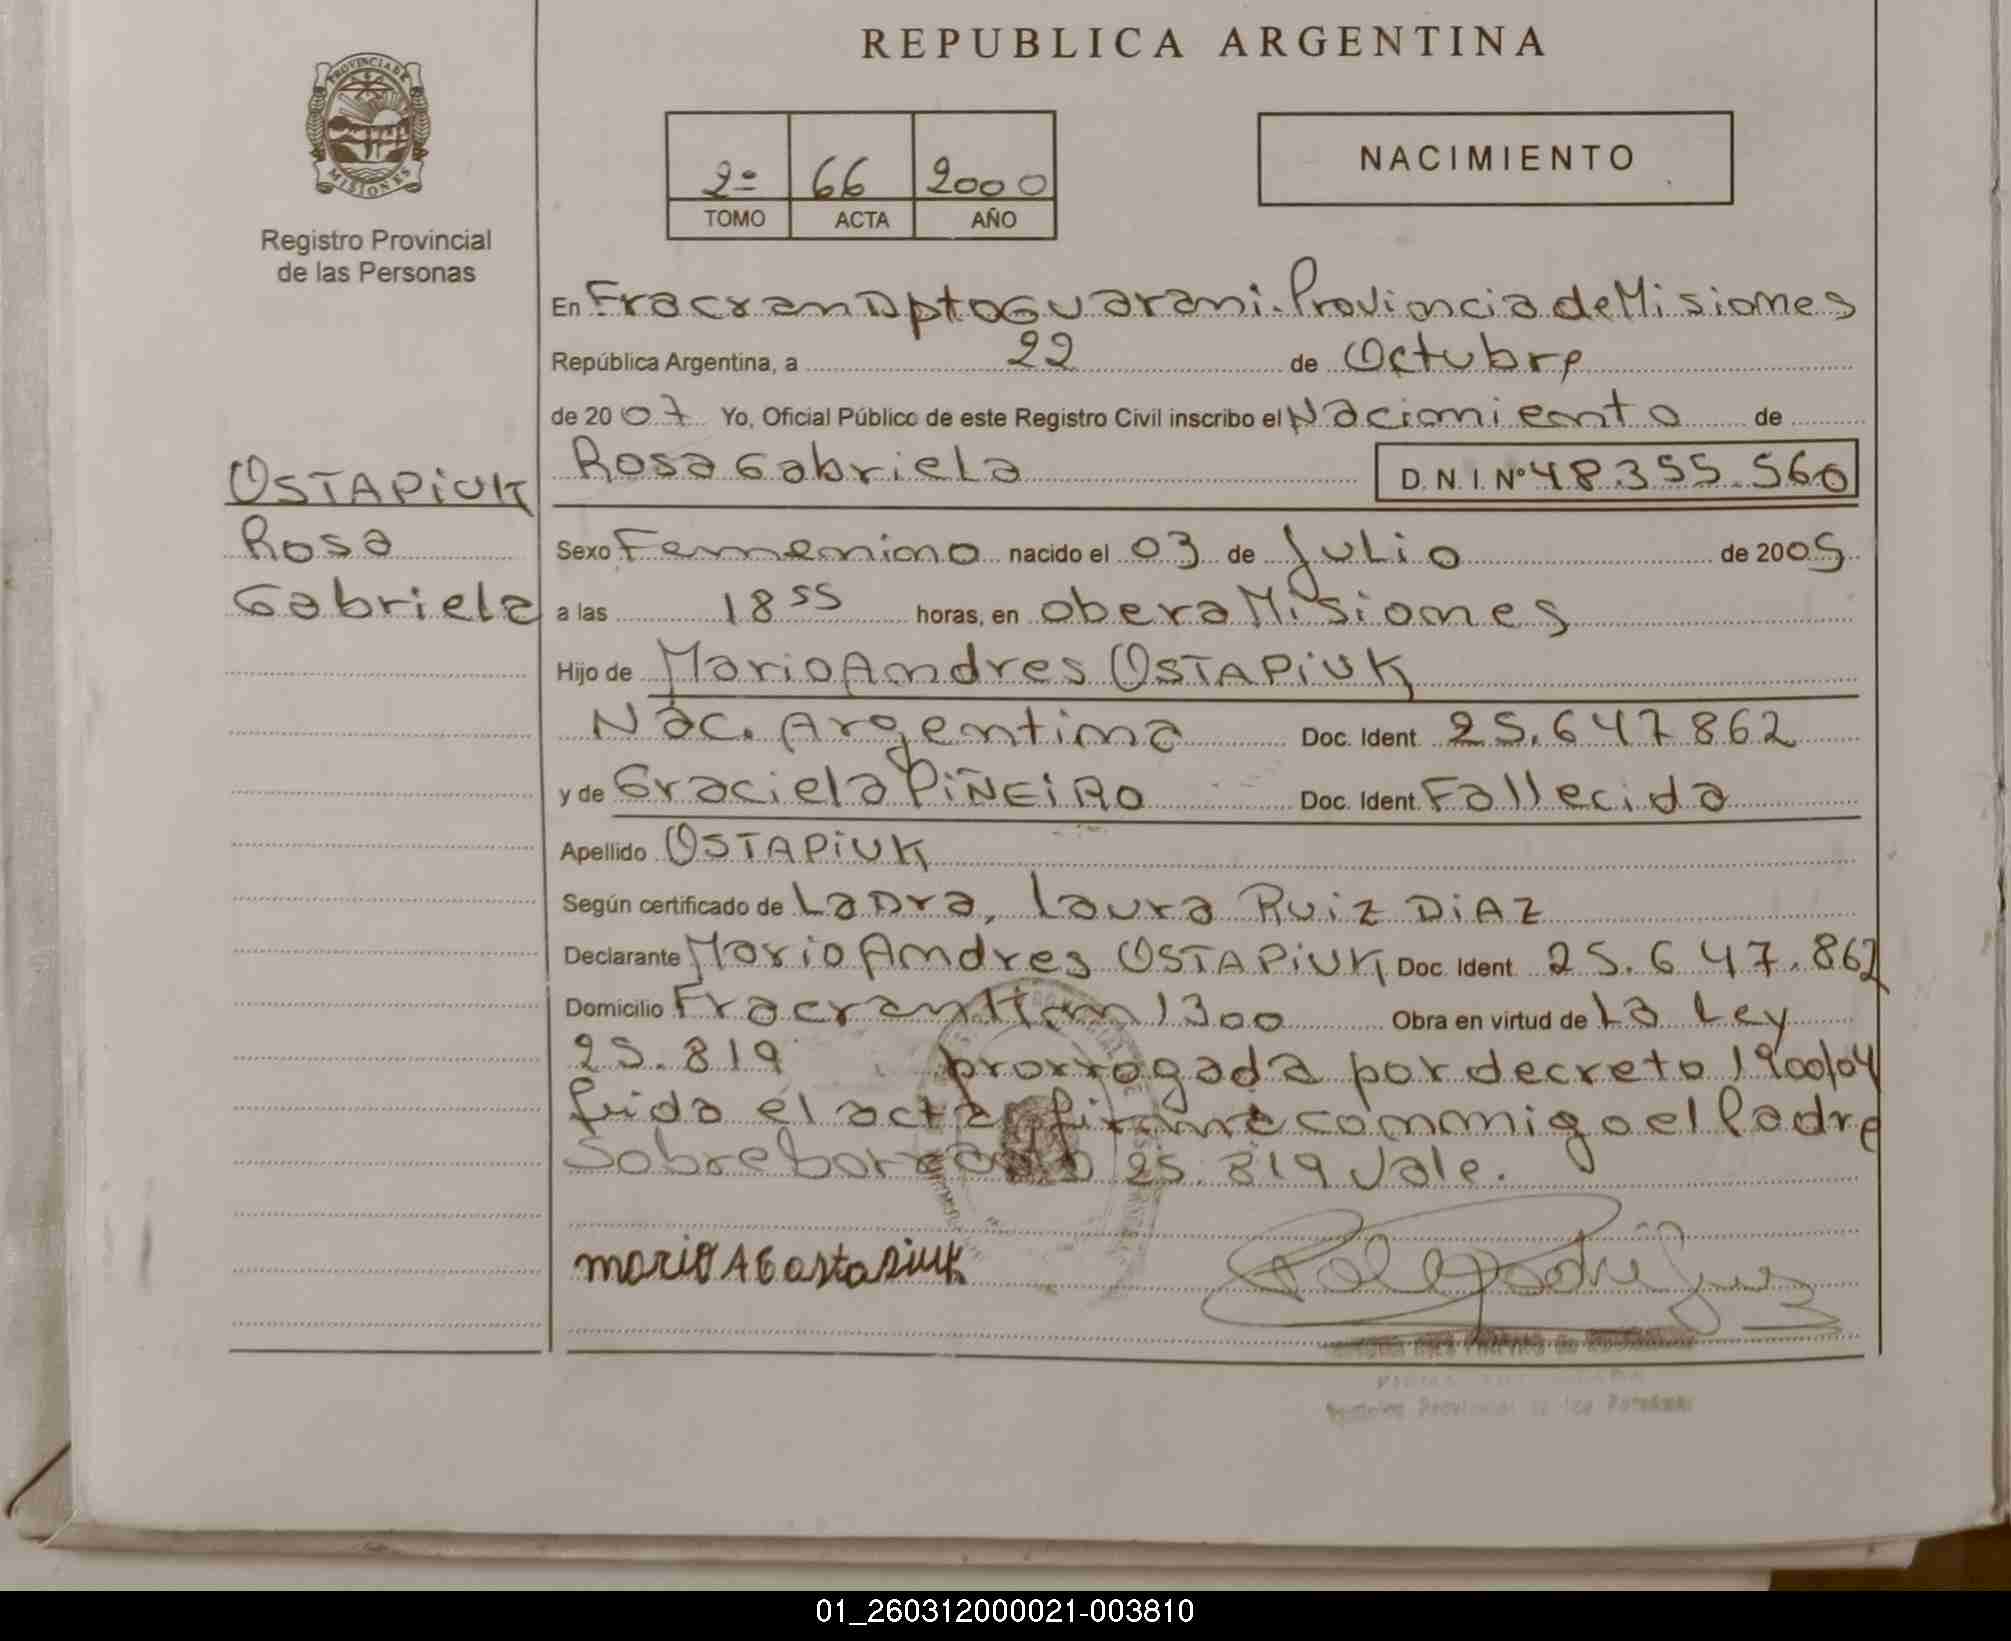 REPUBLICA ARGENTINA
PROVINCIA DE
MISIONES
Registro Provincial
de las Personas
2º 66 2000
TOMO ACTA AÑO
NACIMIENTO
En Fracran Dpto Guarani. Provincia de Misiones
República Argentina, a 22 de Octubre
de 2007 Yo, Oficial Público de este Registro Civil inscribo el Nacimiento de
Rosa Gabriela D. N. I. Nº 48.355.560
OSTAPiUK
Rosa
Gabriela
Sexo Femenino nacido el 03 de Julio de 2005
a las 18 55 horas, en obera Misiones
Hijo de Mario Andres OSTAPiUK
Nac. Argentina Doc. Ident. 25.647862
y de Graciela PiÑEiRO Doc. Ident. Fallecida
Apellido OSTAPiUK
Según certificado de La Dra, Laura RUiZ DiAZ
Declarante Mario Andres OSTAPiUK Doc. Ident. 25.647.862
Domicilio Fracran Km 1300 Obra en virtud de La Ley
25.819 prorrogada por decreto 1900/04
leida el acta firma conmigo el Padre
Sobreborrado 25.819 Vale.